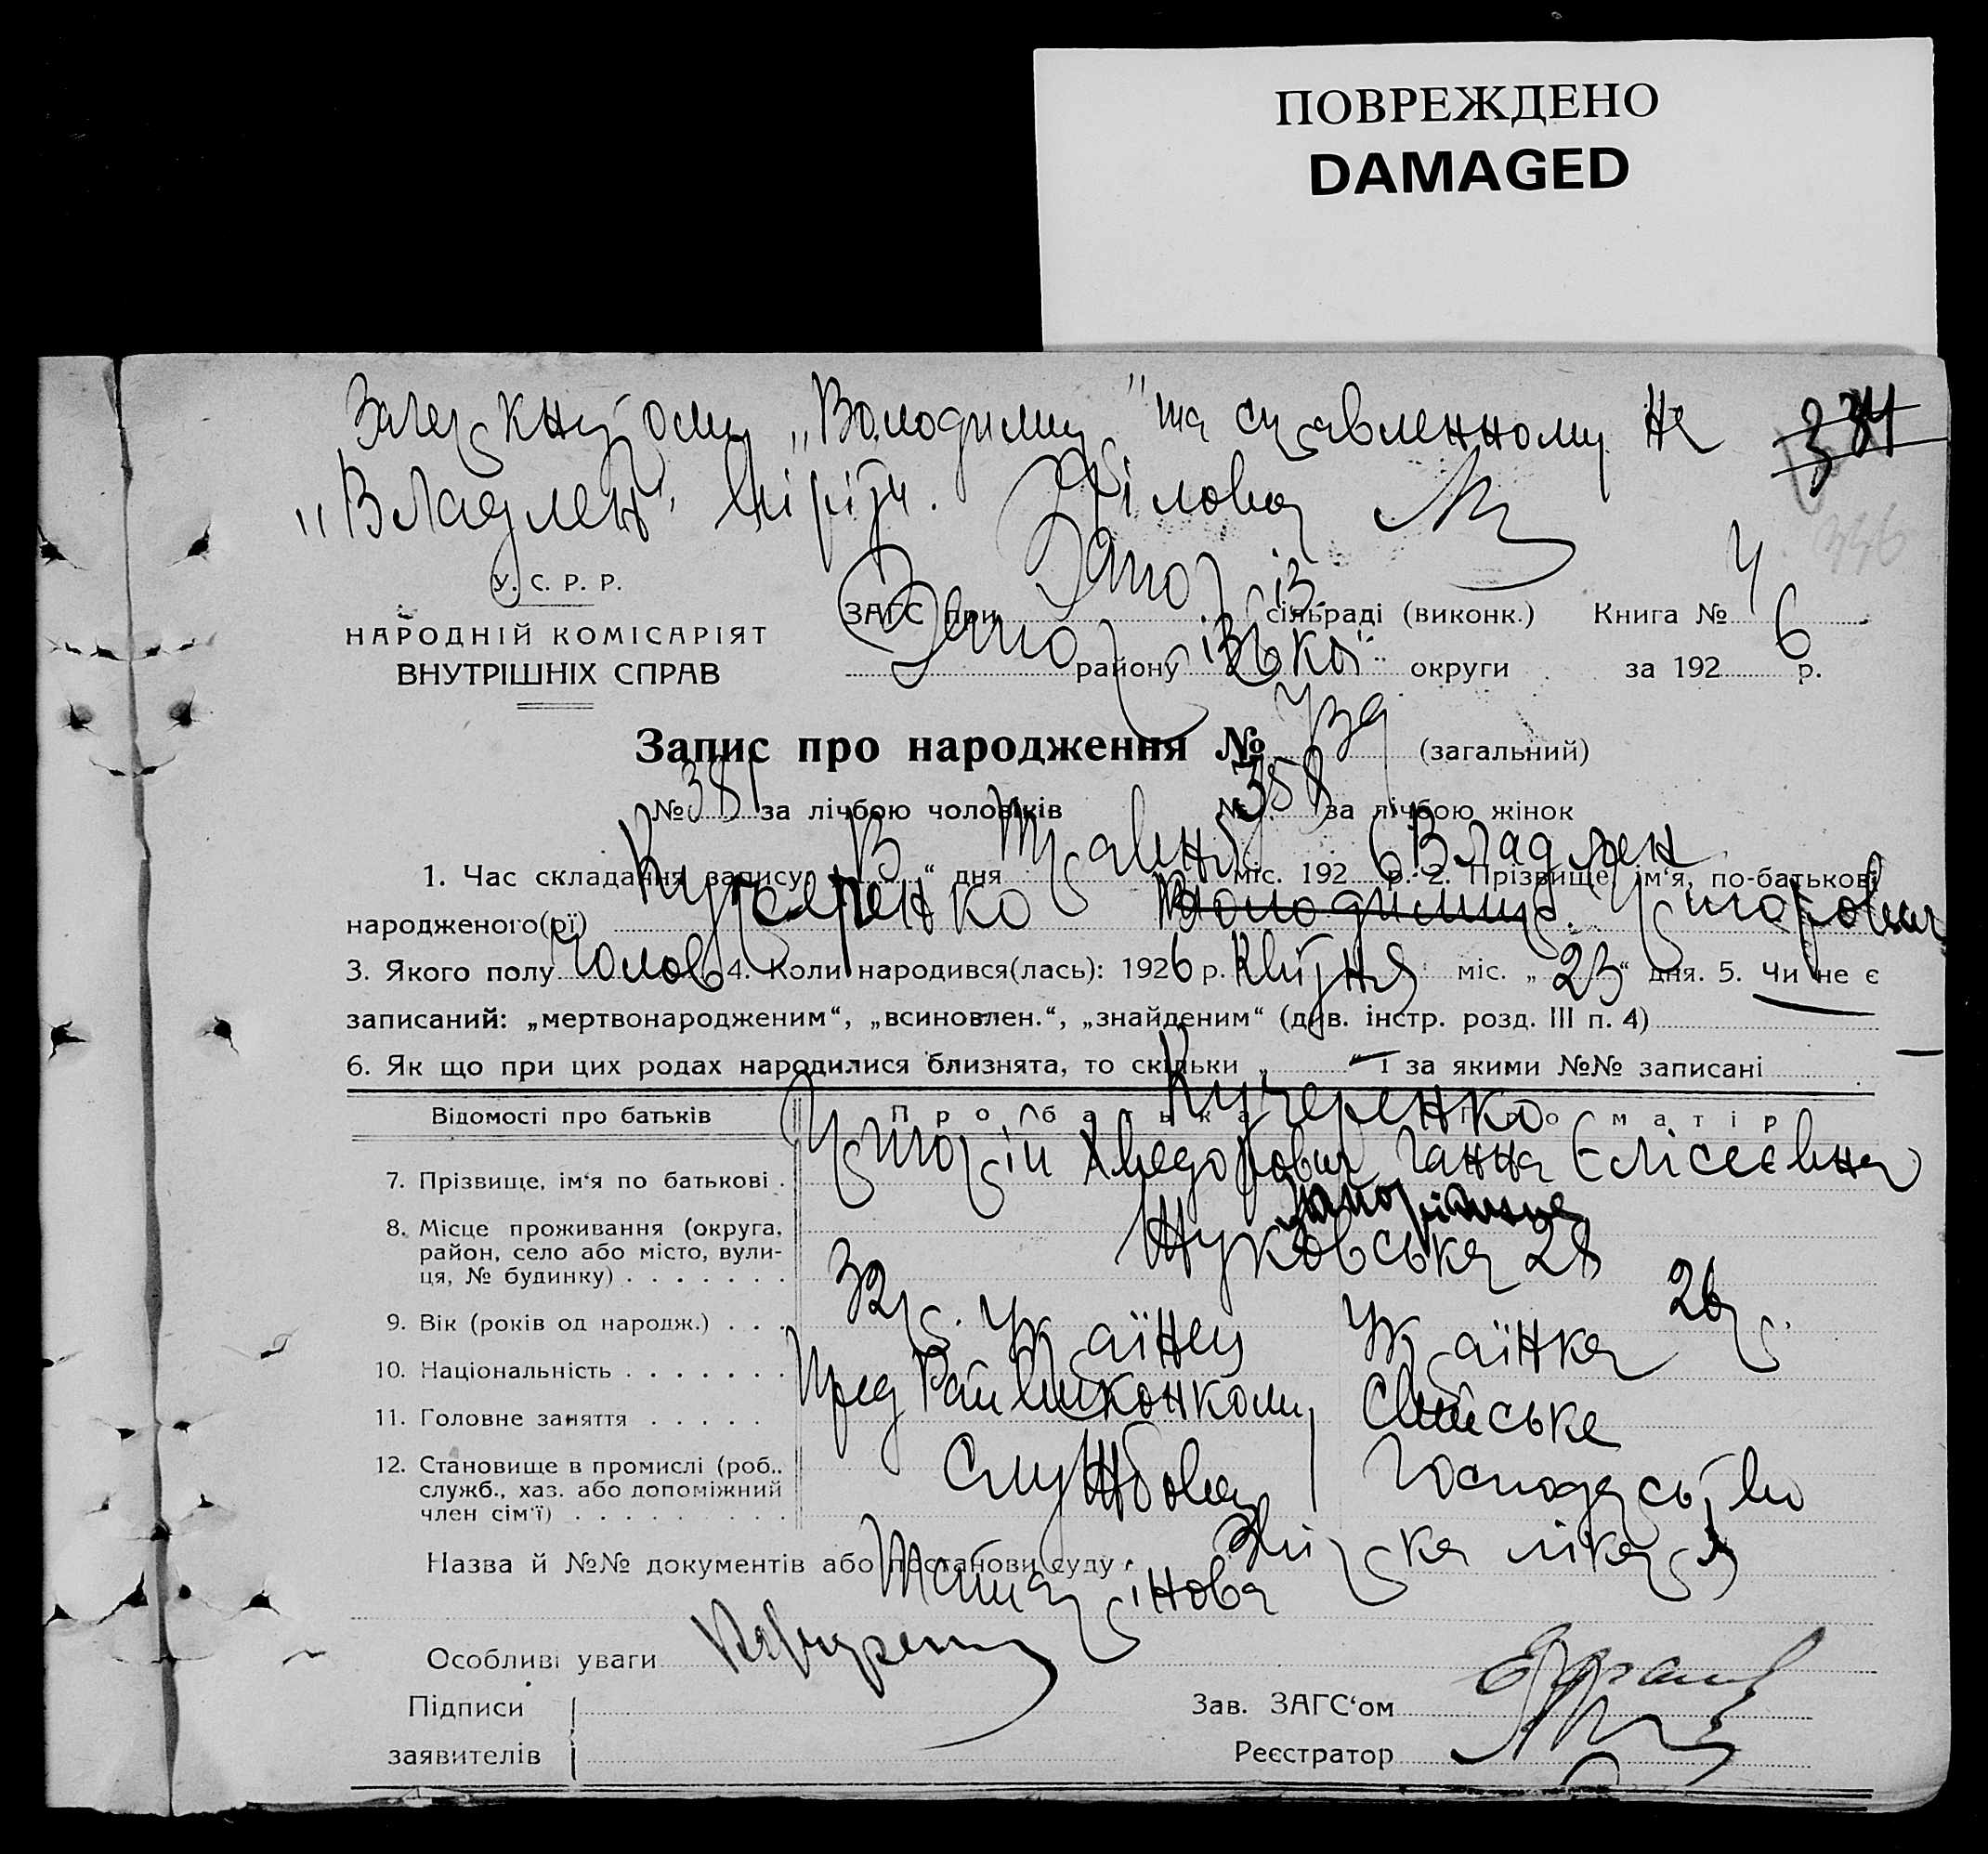 ПОВРЕЖДЕНО
DAMAGED
Закреслному „Володимир" та справленному на 334
„Владлен" вірити. Діловод
336
У. С. Р. Р.
НАРОДНІЙ КОМІСАРІЯТ
ВНУТРІШНІХ СПРАВ
ЗАГС при Запоріз. сільраді (виконк.) Книга № 4
Запо району різької округи за 1926 р.
Запис про народження № 739 (загальний)
№ 381 за лічбою чоловіків № 358 за лічбою жінок
1. Час складання запису „ 3 " дня Травня міс. 1926 р. 2. Прізвище, ім'я, по-батькові
Владлен
народженого(ої) Кучеренко Володимир Григорович
3. Якого полу чолов 4. Коли народився(лась): 1926 р. Квітня міс. „ 23 " дня. 5. Чи не є
записаний: „мертвонародженим", „всиновлен.", „знайденим" (див. інстр. розд. III п. 4) —
6. Як що при цих родах народилися близнята, то скільки „ — " і за якими №№ записані —
Відомості про батьків Про батька Про матір
Кучеренко
7. Прізвище, ім'я по батькові . Григорій Хведорович Ганна Єлісеєвна
8. Місце проживання (округа, район, село або місто, вули-ця, № будинку) . . . . . . . Запоріжже
Жуковська 28
9. Вік (років од народж.) . . . 32 р. 26 р.
10. Національність . . . . . . . Українец Українка
11. Головне заняття . . . . . Пред Райвиконкому Сільське
12. Становище в промислі (роб., служб., хаз. або допоміжний член сім'ї) . . . . . . . . . Службовец Господарство
Назва й №№ документів або постанови суду: Довідка лікаря
Особливі уваги
Підписи
заявителів
Зав. ЗАГС'ом
Реєстратор